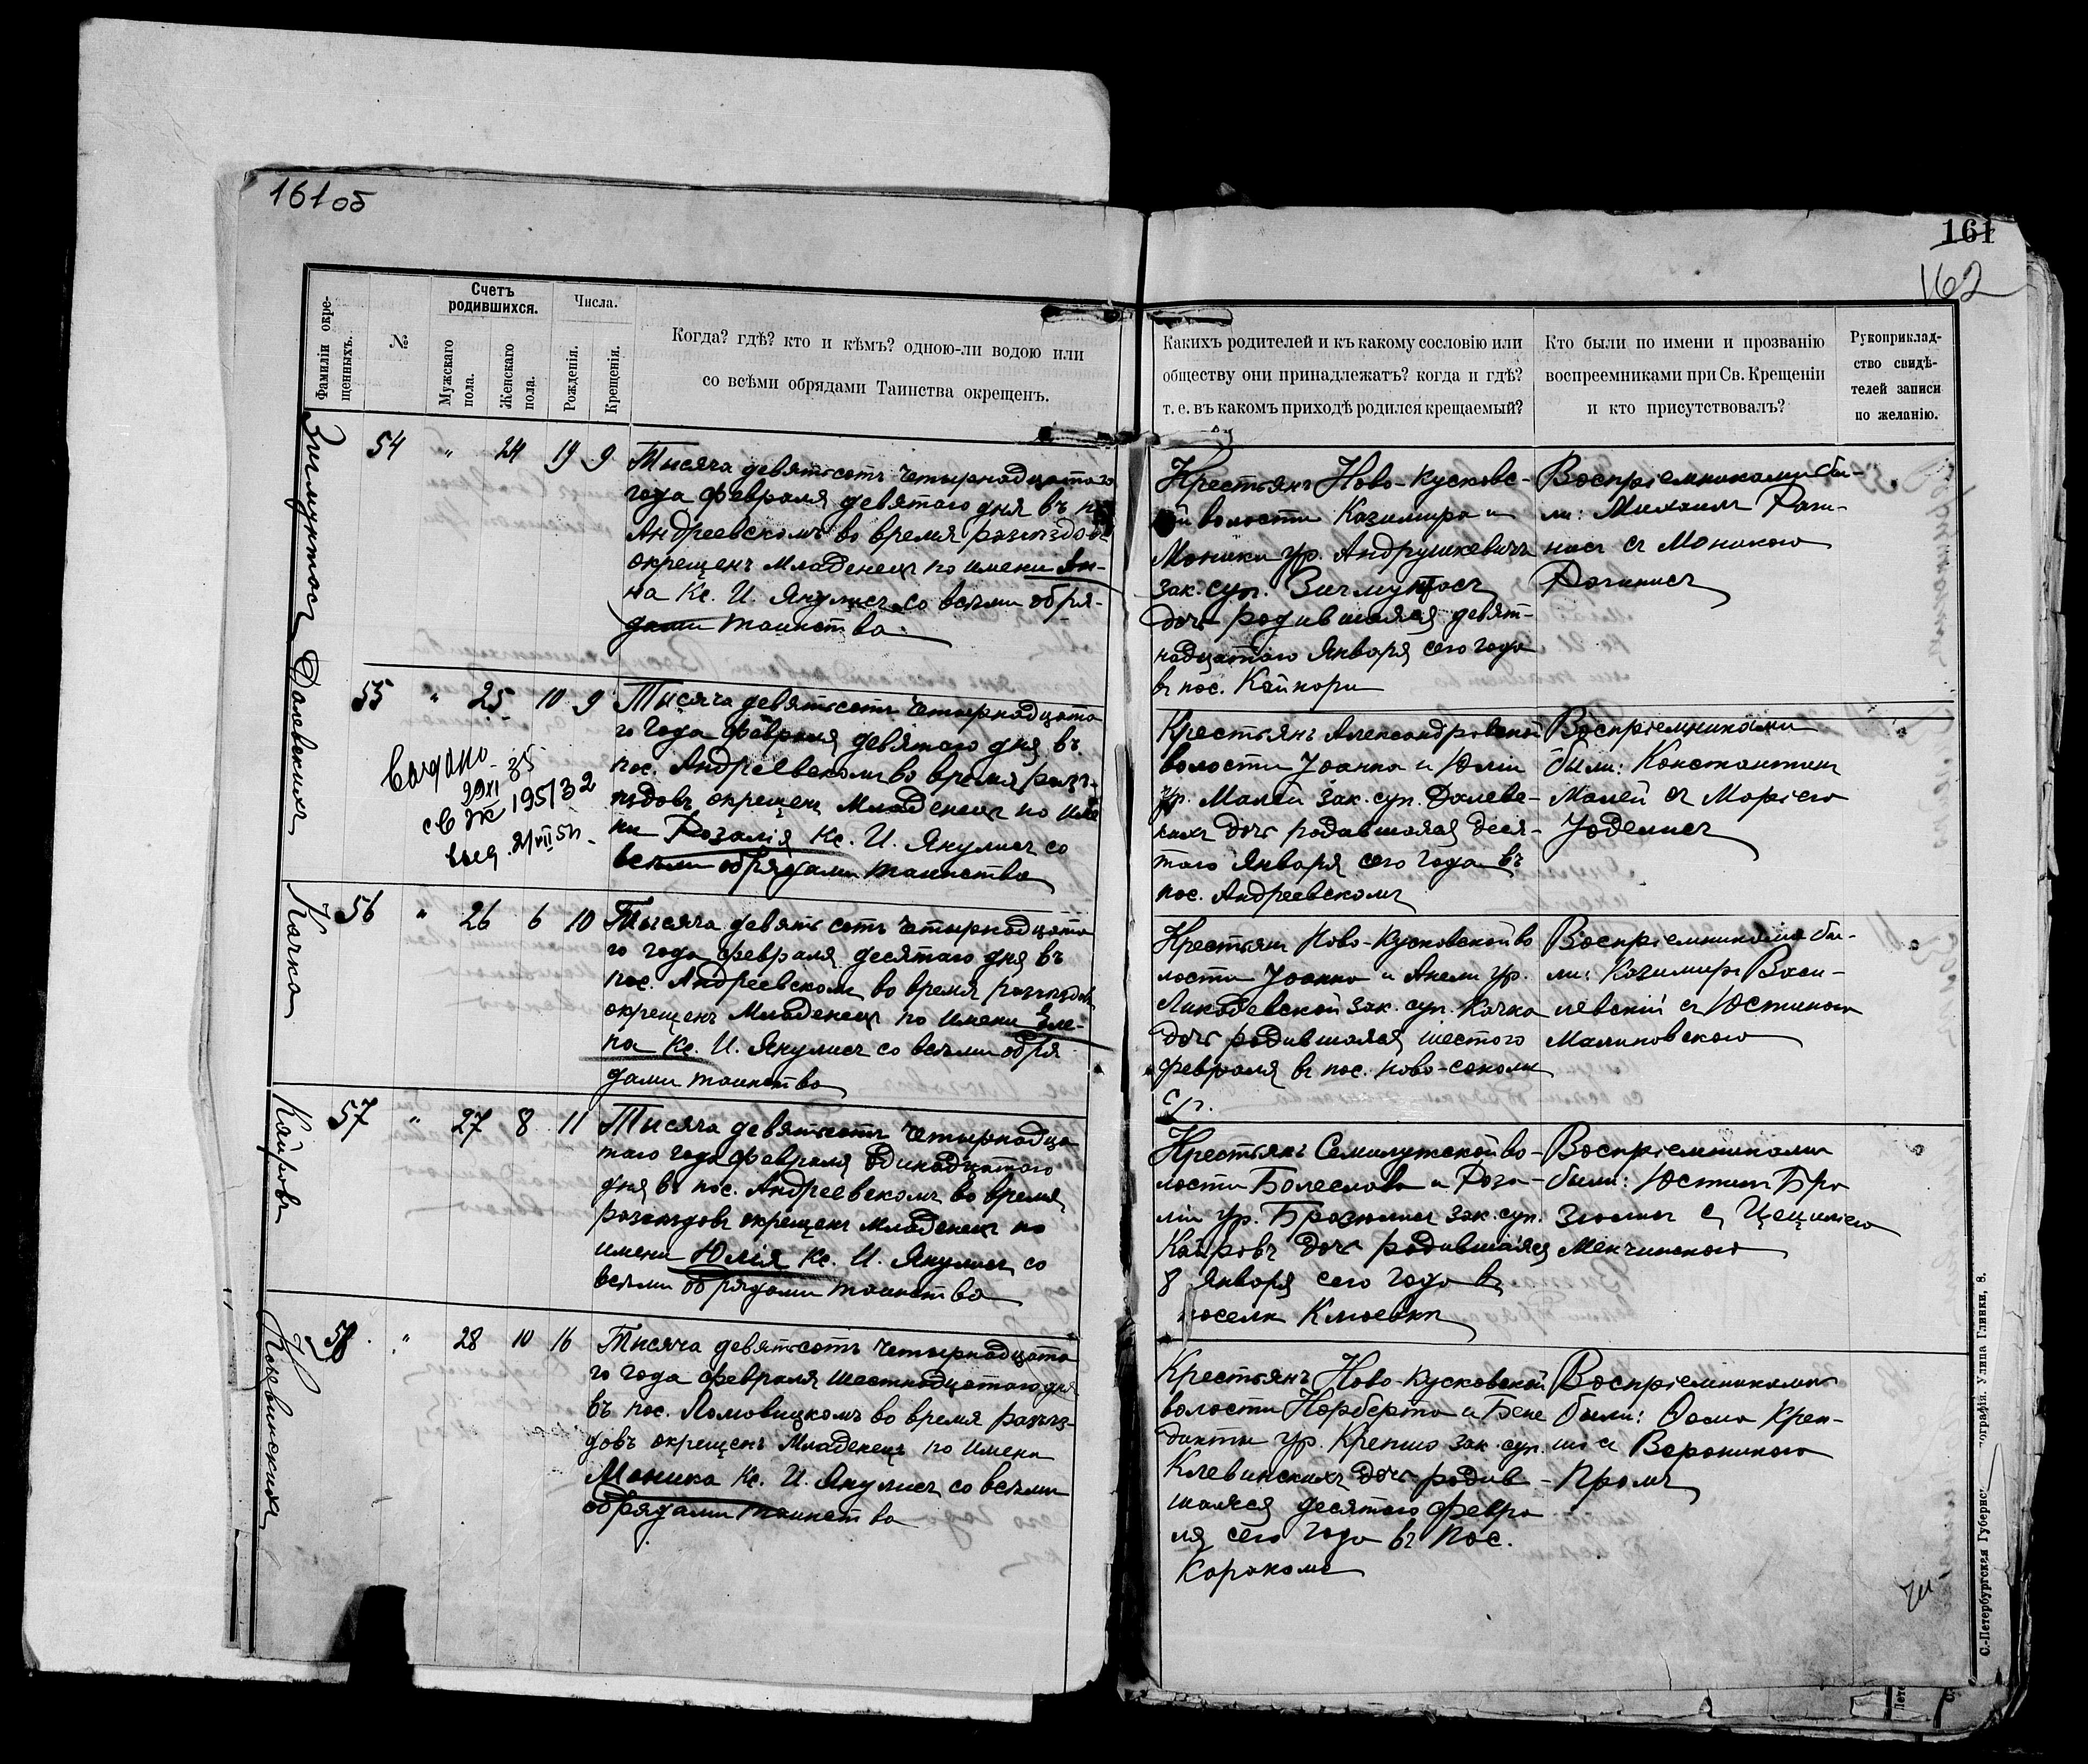 161об
161
162
Фамиліи окре-
щенныхъ.
№
Счетъ
родившихся.
Мужскаго
пола.
Женскаго
пола.
Числа.
Рожденія.
Крещенія.
Когда? гдѣ? кто и кѣмъ? одною-ли водою или
со всѣми обрядами Таинства окрещенъ.
Какихъ родителей и къ какому сословію или
обществу они принадлежатъ? когда и гдѣ?
т. е. въ какомъ приходѣ родился крещаемый?
Кто были по имени и прозванію
воспреемниками при Св. Крещеніи
и кто присутствовалъ?
Рукоприклад-
ство свидѣ-
телей записи
по желанію.
Зигмунтосъ
54 " 24 19 9
Тысяча девятьсотъ четырнадцатаго
года февраля девятаго дня въ
Андреевскомъ во время разъѣздовъ
окрещенъ младенецъ по имени Ян-
на Кс. И. Янулисъ со всѣми обря-
дами таинства
Крестьянъ Ново-Кусковс-
кой волости Казимира и
Моники ур. Андрушкевичъ
зак. суп. Зигмунтосъ
дочь родившаяся девят-
надцатаго Января сего года
въ пос. Кайнори
Воспріемниками бы-
ли: Михаилъ Раги-
нисъ съ Моникою
Рагинисъ
Далевскихъ
55 " 25 10 9
Тысяча девятьсотъ четырнадцата
го года февраля девятаго дня въ
пос. Андреевскомъ во время разъ-
ѣздовъ окрещенъ младенецъ по име
ни Розалія Кс. И. Янулисъ со
всѣми обрядами таинства
29 XI 35
195132
Крестьянъ Александровской
волости Іоанна и Юліи
ур. Малей зак. суп. Далевс-
кихъ дочь родившаяся деся-
таго Января сего года въ
пос. Андреевскомъ
Воспріемниками
были: Константинъ
Малей съ Маріею
Юделисъ
Качко
56 " 26 6 10
Тысяча девятьсотъ четырнадцата
го года февраля десятаго дня въ
пос. Андреевскомъ во время разъѣздовъ
окрещенъ младенецъ по имени Еле-
на Кс. И. Янулисъ со всѣми обря
дами таинства
Крестьянъ Ново-Кусковской во
лости Іоанна и Анели ур.
зак. суп. Качко
дочь родившаяся шестого
февраля въ пос. Ново-
Воспріемниками бы-
ли: Казимиръ Васи-
левскій съ Юстиною
Малиновскою
Кайровъ
57 " 27 8 11
Тысяча девятьсотъ четырнадца
таго года февраля одинадцатого
дня въ пос. Андреевскомъ во время
разъѣздовъ окрещенъ младенецъ по
имени Юлія Кс. И. Янулисъ со
всѣми обрядами таинства
Крестьянъ Семилужской во-
лости Болеслава и Роза-
ліи ур. Бразюлисъ зак. суп.
Кайровъ дочь родившаяся
8 Января сего года въ
поселкѣ Клюевкѣ
Воспріемниками
были: Юстинъ Бра
зюлисъ съ Цециліею
Менчинскою
Клевинскихъ
58 " 28 10 16
Тысяча девятьсотъ четырнадцата
го года февраля шестнадцатого дня
въ пос. Ломовицкомъ во время разъѣз-
довъ окрещенъ младенецъ по имени
Моника Кс. И. Янулисъ со всѣми
обрядами таинства
Крестьянъ Ново-Кусковской
волости Норберта и Бене
дикты ур. Крепшо зак. суп.
Клевинскихъ дочь родив-
шаяся десятого февра
ля сего года въ пос.
Воспріемниками
были: Ѳома Креп-
шо съ Вероникою